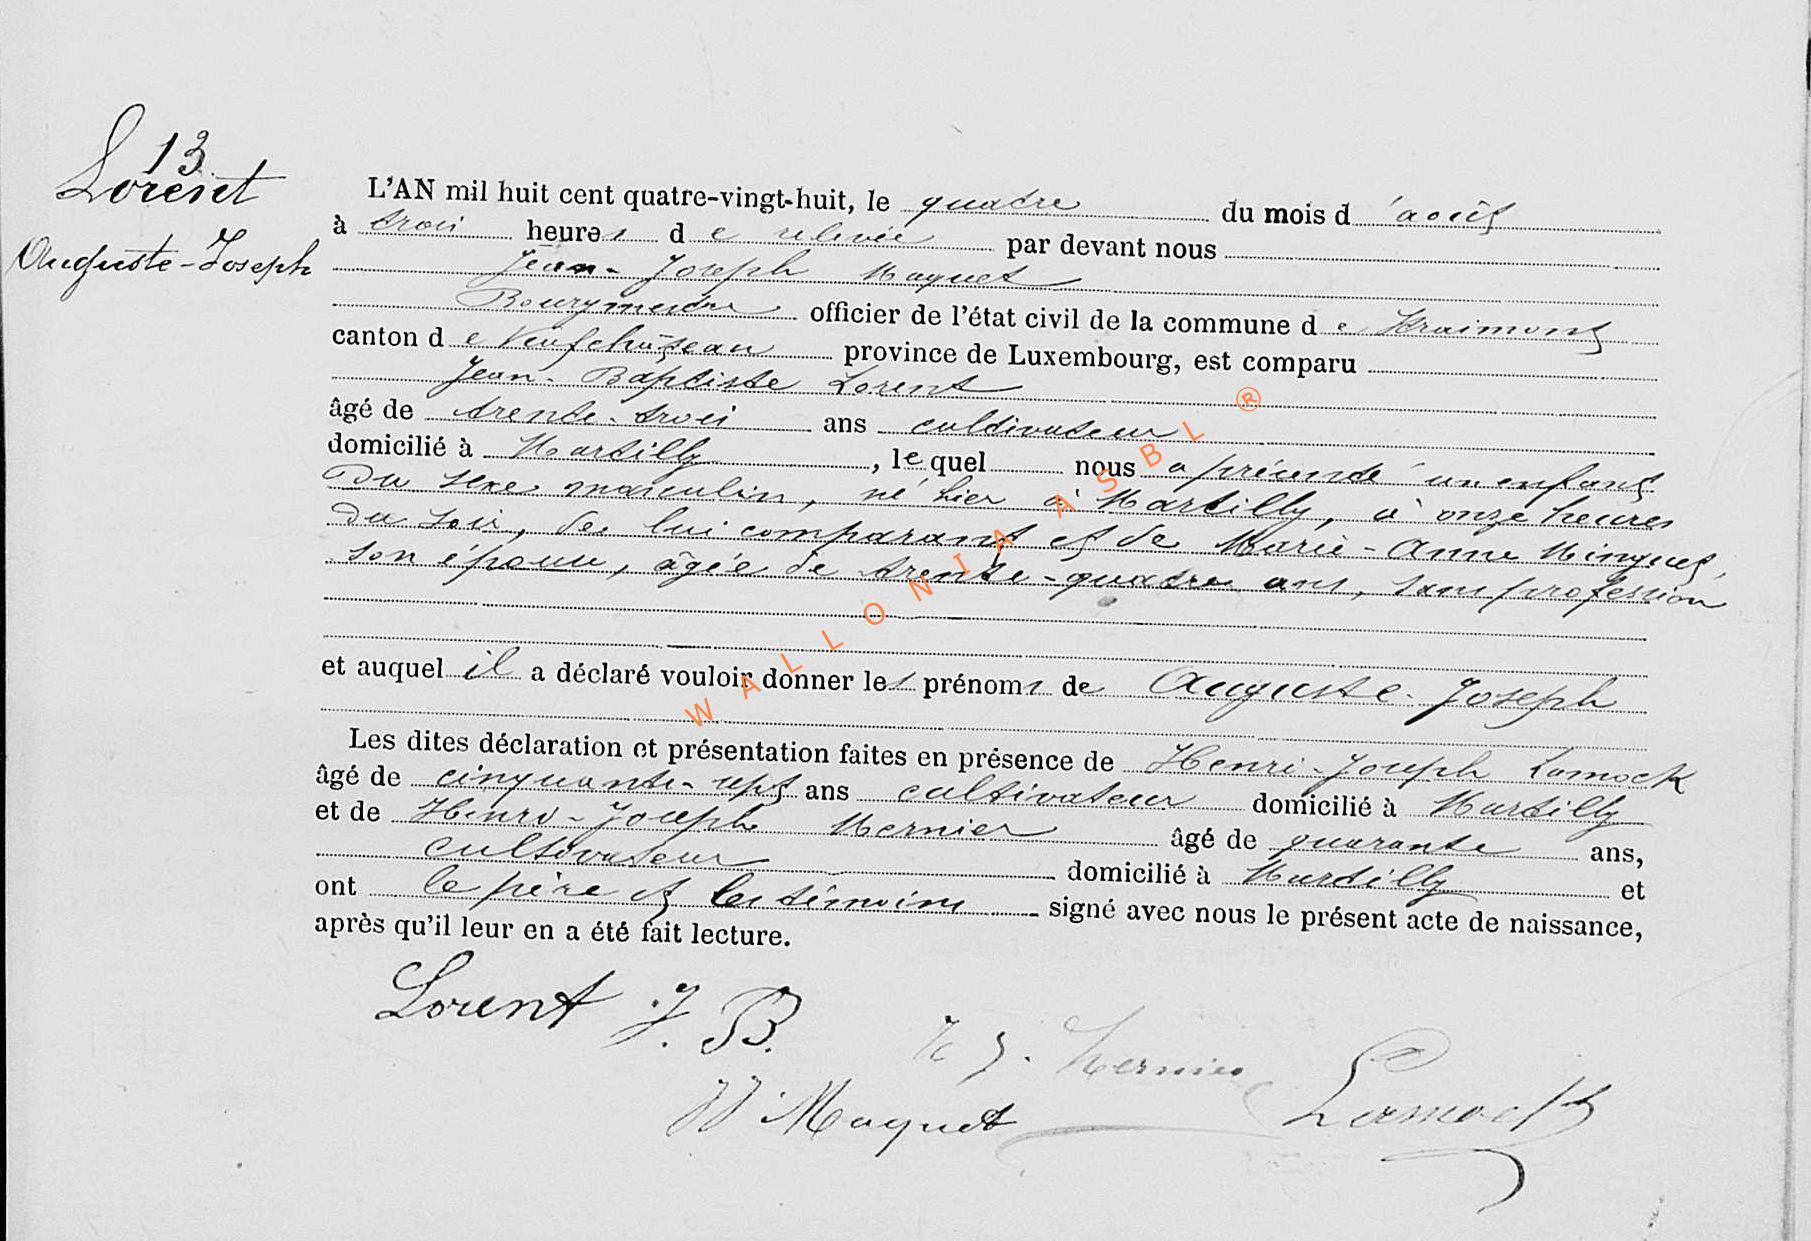 13
Lorent
Auguste-Joseph
L'AN mil huit cent quatre-vingt-huit, le quatre du mois d'août
à trois heures de relevée par devant nous
Jean-Joseph Maquet
Bourgmestre officier de l'état civil de la commune de Straimont
canton de Neufchâteau province de Luxembourg, est comparu
Jean-Baptiste Lorent
âgé de trente-trois ans cultivateur
domicilié à Martilly, lequel nous a présenté un enfant
du sexe masculin, né hier à Martilly, à onze heures
du soir, de lui comparant et de Marie-Anne Mingues,
son épouse, âgée de trente-quatre ans, sans profession
et auquel il a déclaré vouloir donner les prénoms de Auguste-Joseph
Les dites déclaration et présentation faites en présence de Henri-Joseph Lamock
âgé de cinquante-sept ans cultivateur domicilié à Martilly
et de Henri-Joseph Mernier âgé de quarante ans,
cultivateur domicilié à Martilly et
ont le père et les témoins signé avec nous le présent acte de naissance,
après qu'il leur en a été fait lecture.
Lorent J. B.
H J. Mernier
JJ Maquet
Lamock
WALLONIA ASBL ®